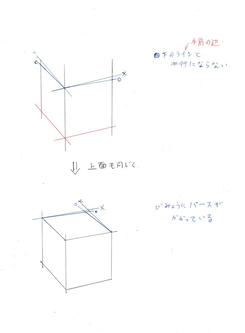 手前の辺
下のラインと
平行にならない
x
o
上面も同じく
x
びみょうにパースが
かかっている